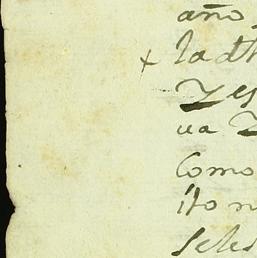 año
la dh
Yes
ua Y
Como
ito n
seles